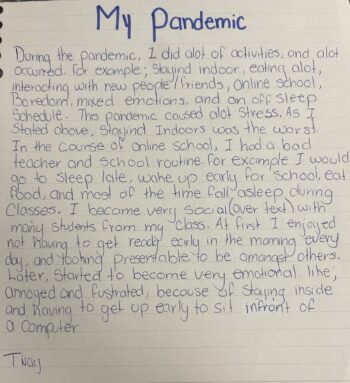 My Pandemic
During the pandemic, I did alot of activities, and alot
occurred. For example; stayind indoor, eating alot,
interacting with new people/friends, online school,
Boredom, mixed emotions, and an off sleep
Schedule. The pandemic caused alot stress, As I
Stated above, Stayind Indoors was the worst.
In the course of online school, I had a bad
teacher and school routine. for example I would
go to sleep late, wake up early for school, eat
food, and most of the time fall asleep during
Classes. I became very social (over text) with
many students from my class. At first I enjoyed
not having to get ready early in the morning every
day, and looking presentable to be amongst others.
Later, started to become very emotional like;
annoyed and fustrated, because of staying inside
and having to get up early to sit infront of
a computer